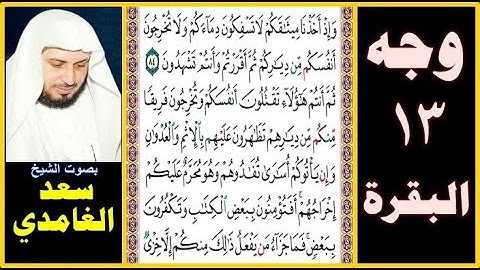 وجه
١٣
البقرة
وَإِذْ أَخَذْنَا مِيثَٰقَكُمْ لَا تَسْفِكُونَ دِمَآءَكُمْ وَلَا تُخْرِجُونَ
أَنفُسَكُم مِّن دِيَٰرِكُمْ ثُمَّ أَقْرَرْتُمْ وَأَنتُمْ تَشْهَدُونَ ٨٤
ثُمَّ أَنتُمْ هَٰٓؤُلَآءِ تَقْتُلُونَ أَنفُسَكُمْ وَتُخْرِجُونَ فَرِيقًا
مِّنكُم مِّن دِيَٰرِهِمْ تَظَٰهَرُونَ عَلَيْهِم بِٱلْإِثْمِ وَٱلْعُدْوَٰنِ
وَإِن يَأْتُوكُمْ أُسَٰرَىٰ تُفَٰدُوهُمْ وَهُوَ مُحَرَّمٌ عَلَيْكُمْ
إِخْرَاجُهُمْ أَفَتُؤْمِنُونَ بِبَعْضِ ٱلْكِتَٰبِ وَتَكْفُرُونَ
بِبَعْضٍ فَمَا جَزَآءُ مَن يَفْعَلُ ذَٰلِكَ مِنكُمْ إِلَّا خِزْىٌ
بصوت الشيخ
سعد
الغامدي